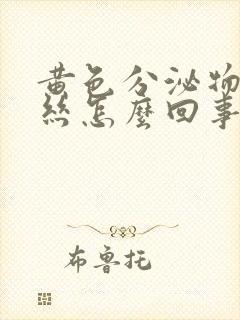 黄色分泌物
丝怎麽回事
布鲁托